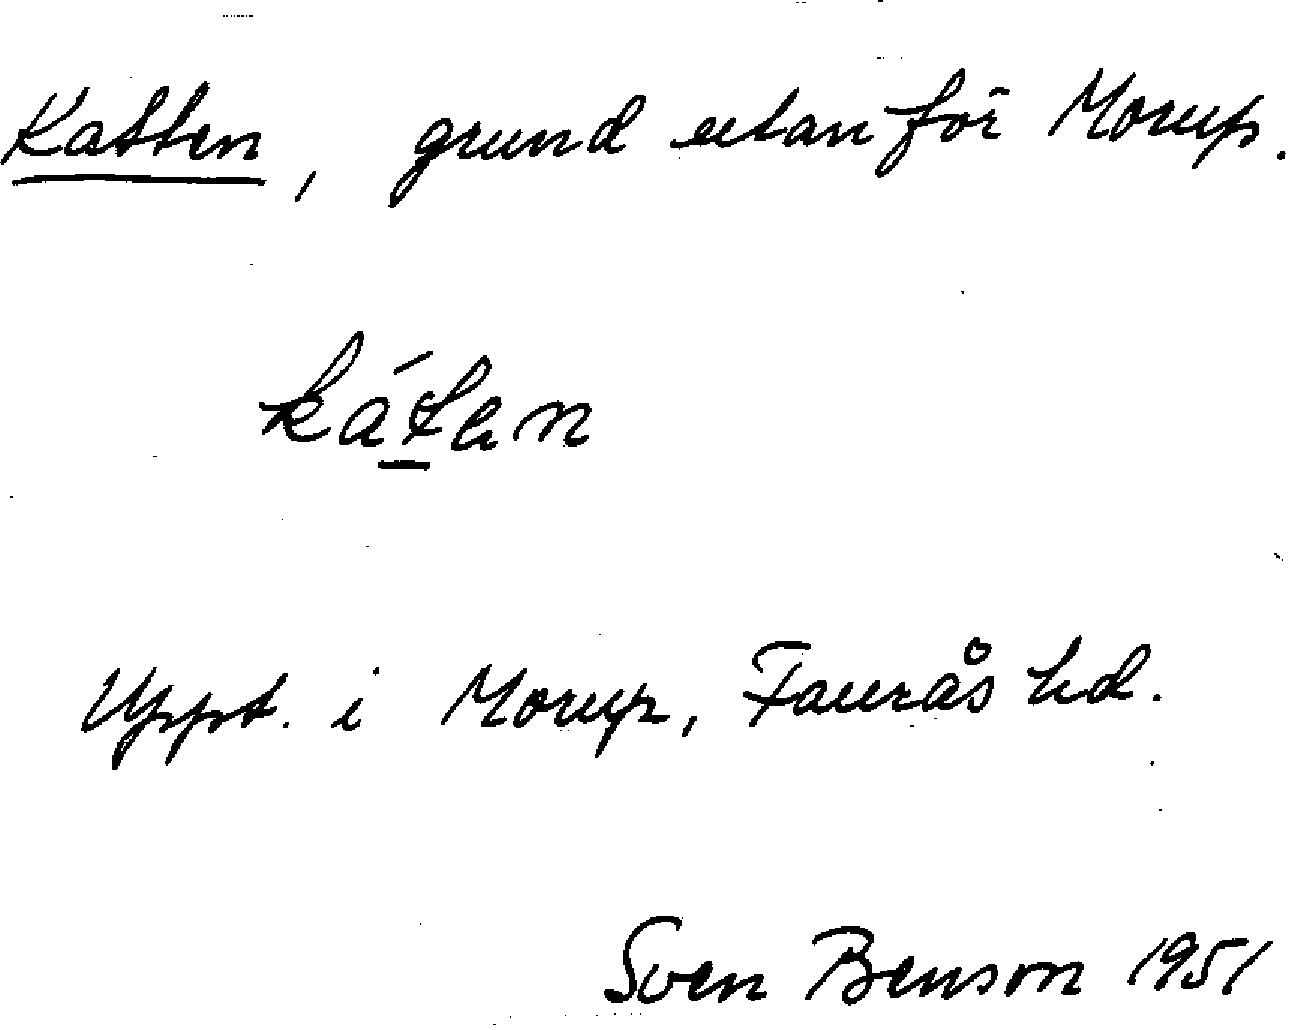 Katten, grund utanför Morup.
káten
Uppt. i Morup, Faurås hd.
Sven Benson 1951